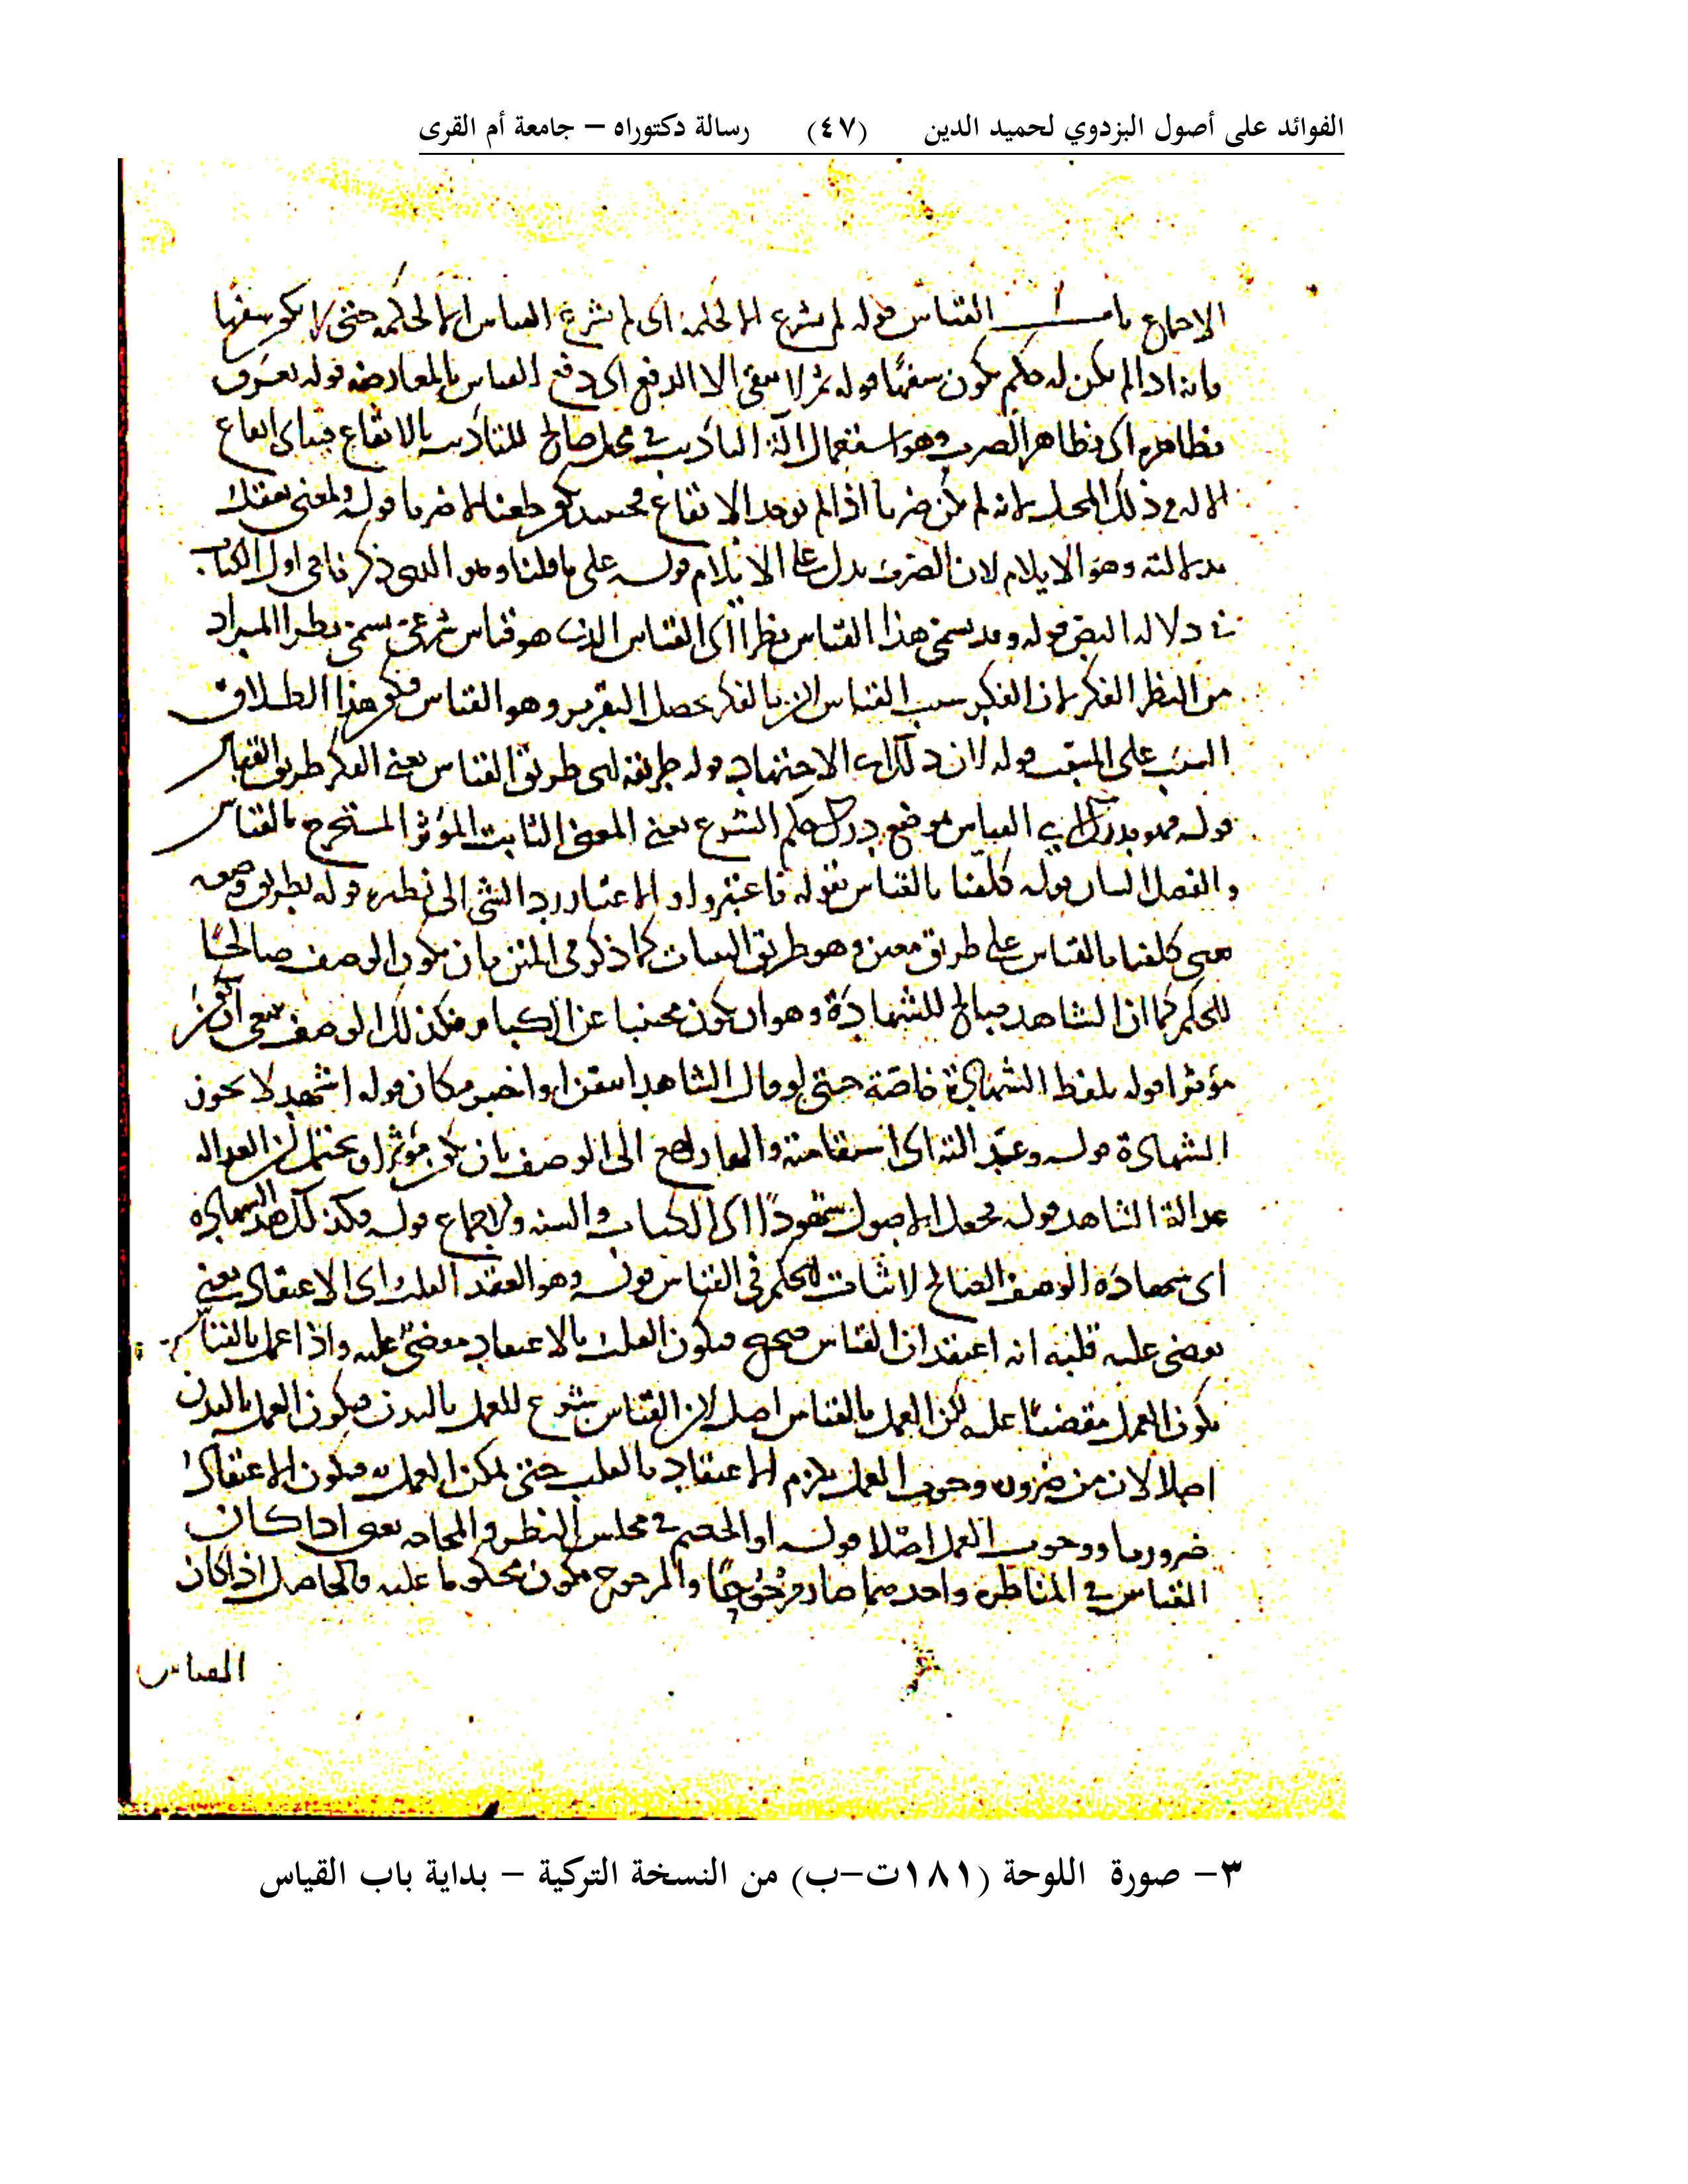 الفوائد على أصول البزدوي لحميد الدين (٤٧) رسالة دكتوراه – جامعة أم القرى
الاجماع باب القياس قوله لم يشرع الا لحكمة اى لم يشرع القياس الا لحكمة حتى لا يكو سفها
فانه اذا لم يكن له حكم يكون سفها قوله ثم لا يبقى الا الدفع اى دفع القياس بالمعارضة قوله تعرف
بظاهره اى بظاهر الضرب وهو استعمال آلة التأديب في محل صالح للتأديب بالايقاع فيه اى ايقاع
الاله في ذلك المحل لانه لم يكن ضربا اذا لم يوجد الايقاع قوله ولمعنى يعقل
بدلالته وهو الايلام لان الضرب يدل على الايلام قوله على ما قلنا وهو الذى ذكرنا في اول الكتاب
في دلالة النص قوله وقد يسمى هذا القياس نظرا اى القياس الذى هو قياس شرعى يسمى نظرا المراد
من النظر الفكر لان الفكر سبب القياس لان بالفكر حصل التقرير وهو القياس فيكو هذا اطلاق
السبب على المسبب قوله لان ذلك اى الاجتهاد قوله طريقه اى طريق القياس يعنى الفكر طريق القياس
قوله فهو مدرك اى القياس موضع درك حكم الشرع يعنى المعنى الثابت المؤثر المستخرج بالقياس
والفصل الثانى قوله كلفنا بالقياس بقوله فاعتبروا والاعتبار رد الشى الى نظيره قوله بطريق وضعه
يعنى كلفنا بالقياس على طريق معين وهو طريق البيان كما ذكر في المتن بان يكون الوصف صالحا
للحكم كما ان الشاهد صالح للشهادة وهو ان يكون مجتنبا عن الكبائر فكذلك الوصف ينبغى ان يكون
مؤثرا قوله بلفظ الشهادة خاصة حتى لو قال الشاهد استيقن او اخبر مكان قوله اشهد لا يجوز
الشهادة قوله وعدالته اى استقامته والهاء راجع الى الوصف بان يكو مؤثرا ويحتمل ان العدالة
عدالة الشاهد قوله فجعل الاصول شهودا اى الكتاب والسنه والاجماع قوله فكذلك هذه الشهادة
اى شهادة الوصف الصالح لاثبات الحكم في القياس قوله وهو العقد القلب اى الاعتقاد يعنى
يقضى عليه قلبه انه اعتقد ان القياس صحيح فيكون القلب بالاعتقاد مقضى عليه واذا عمل بالقياس
يكون العمل مقضيا عليه لكن العمل بالقياس اصل لان القياس شرع للعمل بالبدن فيكون العمل بالبدن
اصلا لان من ضرورة وجوب العمل يلزم الاعتقاد بالقلب حتى يمكن العمل به فيكون الاعتقاد
ضروريا ووجوب العمل اصلا قوله او الخصم في مجلس النظر والمحاجه يعنى اذا كان
القياس في المناظره واحد منهما صار مرجوحا والمرجوح يكون محكوما عليه فالحاصل اذا كان
القياس
٣– صورة اللوحة (١٨١ت–ب) من النسخة التركية – بداية باب القياس